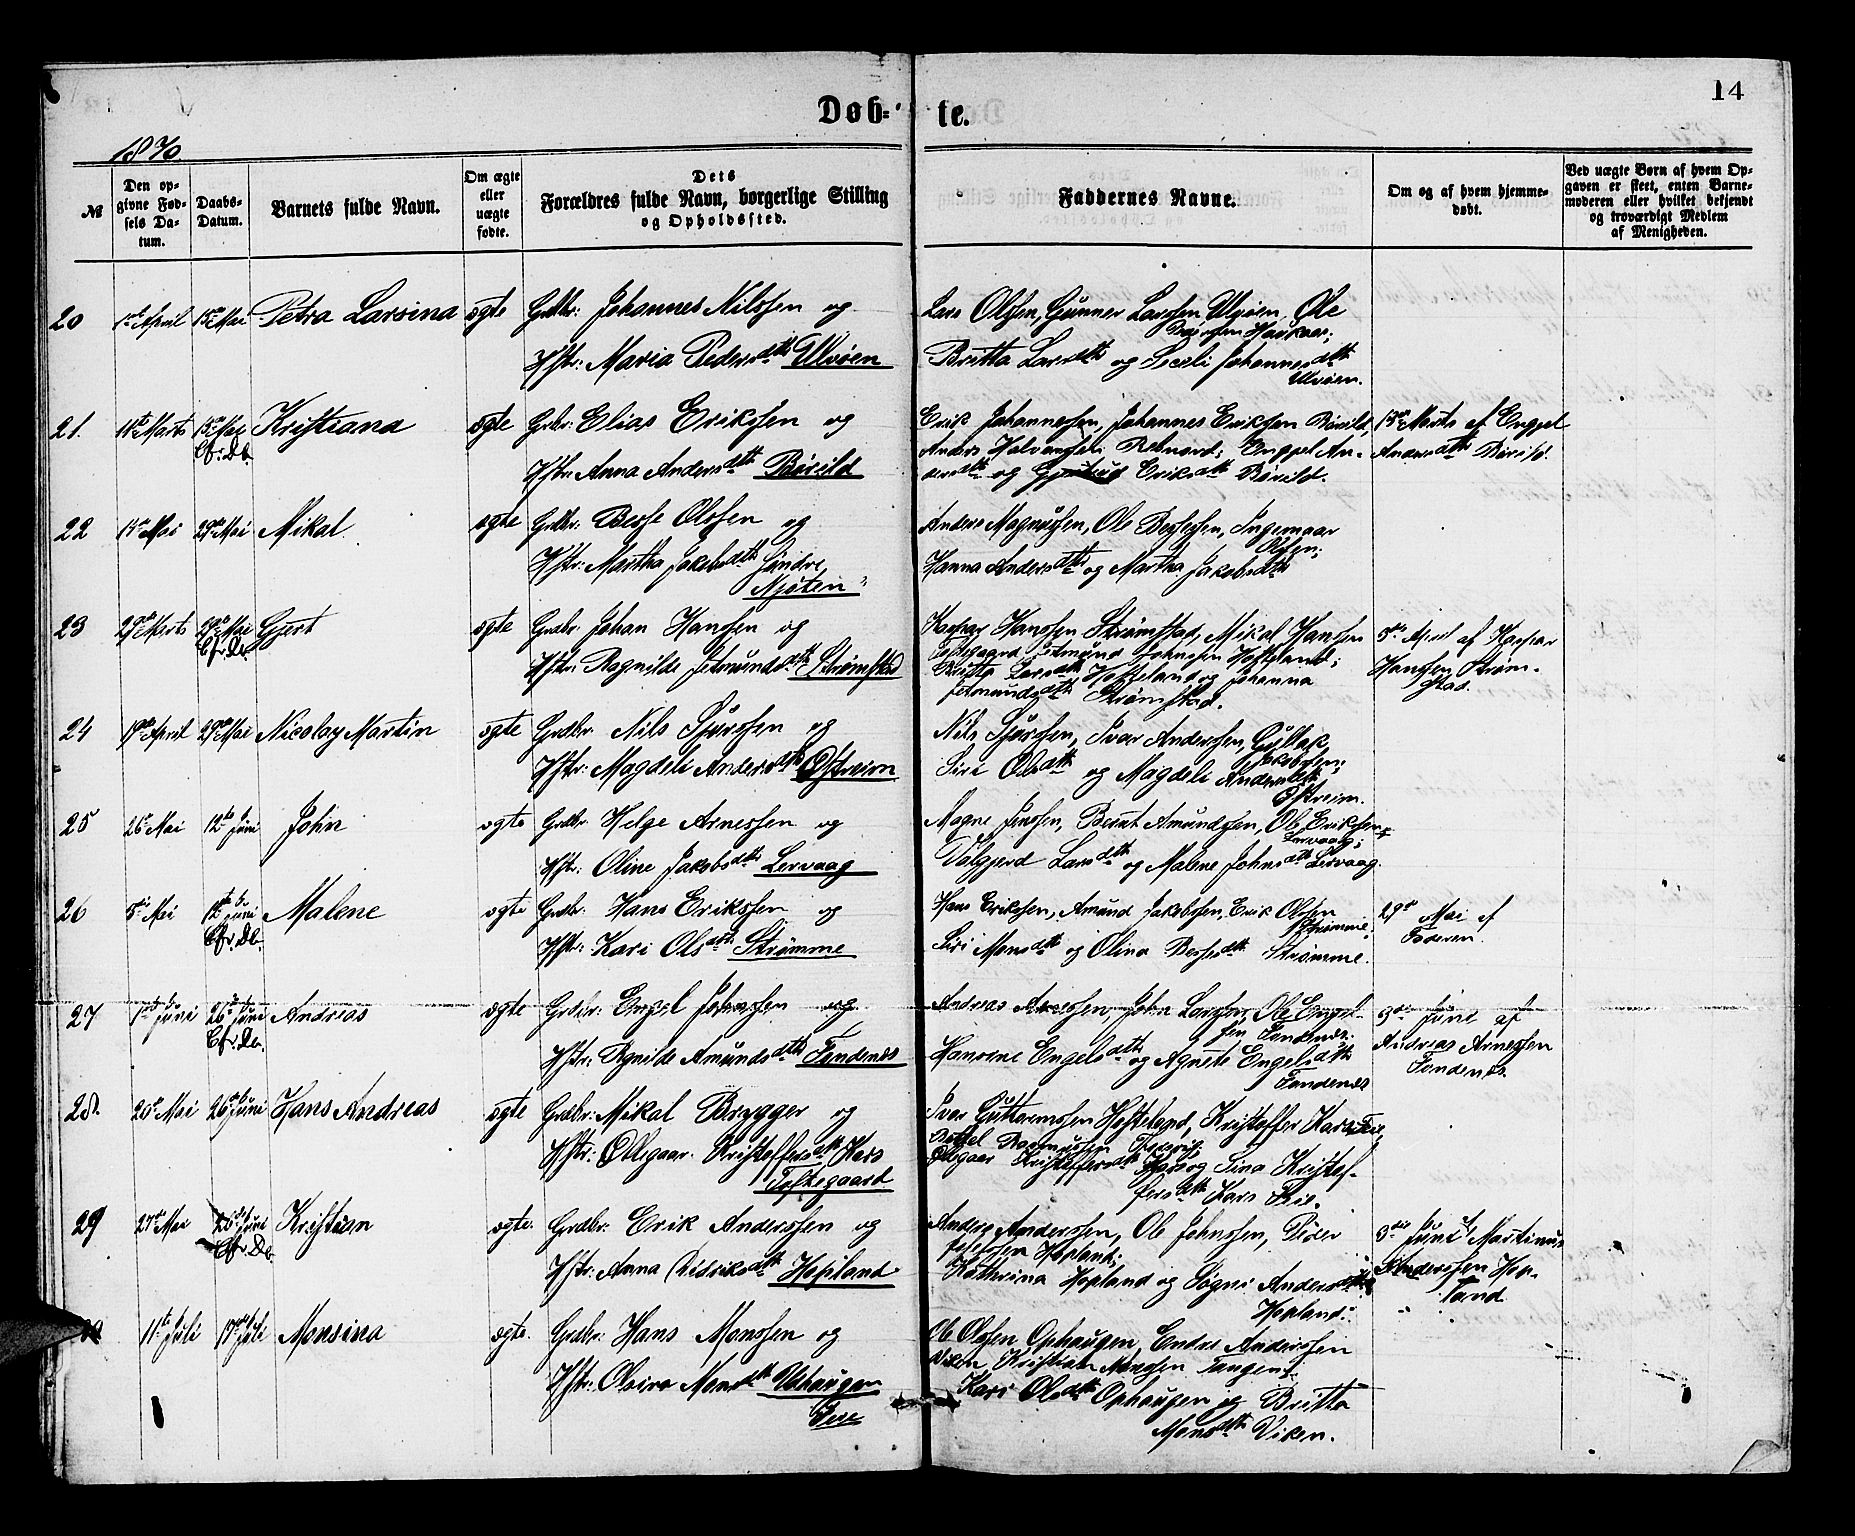 14
Døb- te.
1870
№
Den op-
givne Fød-
sels Da-
tum.
Daabs-
Datum.
Barnets fulde Navn.
Om ægte
eller
uægte
fødte.
Dets
Forældres fulde Navn, borgerlige Stilling
og Opholdssted.
Faddernes Navne.
Om og af hvem hjemme-
døbt.
Ved uægte Børn af hvem Op-
gaven er skeet, enten Barne-
moderen eller hvilket bekjendt
og troværdigt Medlem
af Menigheden.
20 1ste April 15de Mai Petra Larsina ægte Grdbr: Johannes Nilssen og
Hstr: Maria Pedersdtt Ulvøen
Lars Olssen, Gunner Larssen Ulvøen, Ole
Haukaas;
Britta Larsdtt og Seseli Johannesdtt
Ulvøen.
21. 11te Marts 15de Mai Kristiana ægte Grdbr: Elias Erikssen og
Cfr. Db.
Hstr: Anna Andersdtt Børild
Erik Johannessen, Johannes Erikssen Børild,
Anders Halvorssen Rebnord; Engel An-
dersdtt og Gjertrud Eriksdtt Børild.
15de Marts af Engel
Andersdtt Børild.
22 14de Mai 29de Mai Mikal ægte Grdbr. Besse Olssen og
Hstr: Martha Jakobsdtt Søndre
Mjøten
Anders Magnussen, Ole Bessessen, Ingemaar
Olssen;
Hanna Andersdtt og Martha Jakobsdtt
23 29de Marts 29de Mai Gjert ægte Grdbr Johan Hanssen og
Cfr. Db.
Hstr: Ragnilde Jetmundsdtt Strømstad
Kaspar Hanssen Strømstad, Mikal Hanssen
Toftegaard Jetmund Johnssen Hosteland;
Britta Larsdtt Hosteland og Johanna
Jetmundsdtt Strømstad.
3die April af Kaspar
Hanssen Strøm-
stad.
24 19de April 29de Mai Nicolay Martin ægte Grdbr Nils Sjurssen og
Hstr: Magdeli Andersdtt Østreim
Nils Sjurssen, Ivar Anderssen, Gullak
Jakobssen;
Siri Olsdtt og Magdeli Andersdtt
Østreim.
25 26de Mai 12te Juni John ægte Grdbr Helge Arnessen og
Hstr: Oline Jakobsdtt Lervaag
Mogne Jenssen, Bernt Amundssen, Ole Erikssen
Lervaag;
Valgjerd Larsdtt og Malene Johnsdtt Lervaag.
26 5te Mai 12te Juni Malene ægte Grdbr: Hans Erikssen og
Cfr. Db.
Hstr: Kari Olsdtt Strømme
Hans Erikssen, Amund Jakobssen, Erik Olssen
Strømme;
Siri Monsdtt og Olina Bessesdtt Strømme.
29de Mai af
Faderen.
27 1ste Juni 26de Juni Andreas ægte Grdbr: Engel Johnssen og
Cfr. Db.
Hstr: Ragnilde Amundsdtt Fandenes
Andreas Arnessen, John Larssen, Ole Engel-
sen Fandenes;
Hansene Engelsdtt og Agnete Engelsdtt
Fandenes
3die Juni af
Andreas Arnessen
Fandenes.
28. 25de Mai 26de Juni Hans Andreas ægte Grdbr: Mikal Brygger og
Hstr: Ollegaar Kristoffersdtt Kars
Toftegaard
Ivar Guttormssen Hosteland, Kristoffer Kars Feie,
Rasmussen
Ollegaar Kristoffersdtt Kars og Sina Kristof-
fersdtt Kars Feie.
29 27de Mai 26de Juni Kristian ægte. Grdbr: Erik Anderssen og
Cfr. Db.
Hstr: Anna Didriksdtt Hopland
Anders Anderssen, Ole Johnssen, Peder
Hopland;
Kathrina Hopland og Søgni Andersdtt
Hopland.
3die Juni af Martinus
Anderssen Hop-
land.
30 11te Juli 17de Juli Monsina ægte. Grdbr: Hans Monssen og
Hstr: Olvira Monsdtt Ophaugen
Ole Olssen Ophaugen, Endre Anderssen
Viken, Kristian Monssen Tangen;
Kari Olsdtt Ophaugen og Britta
Monsdtt Viken.